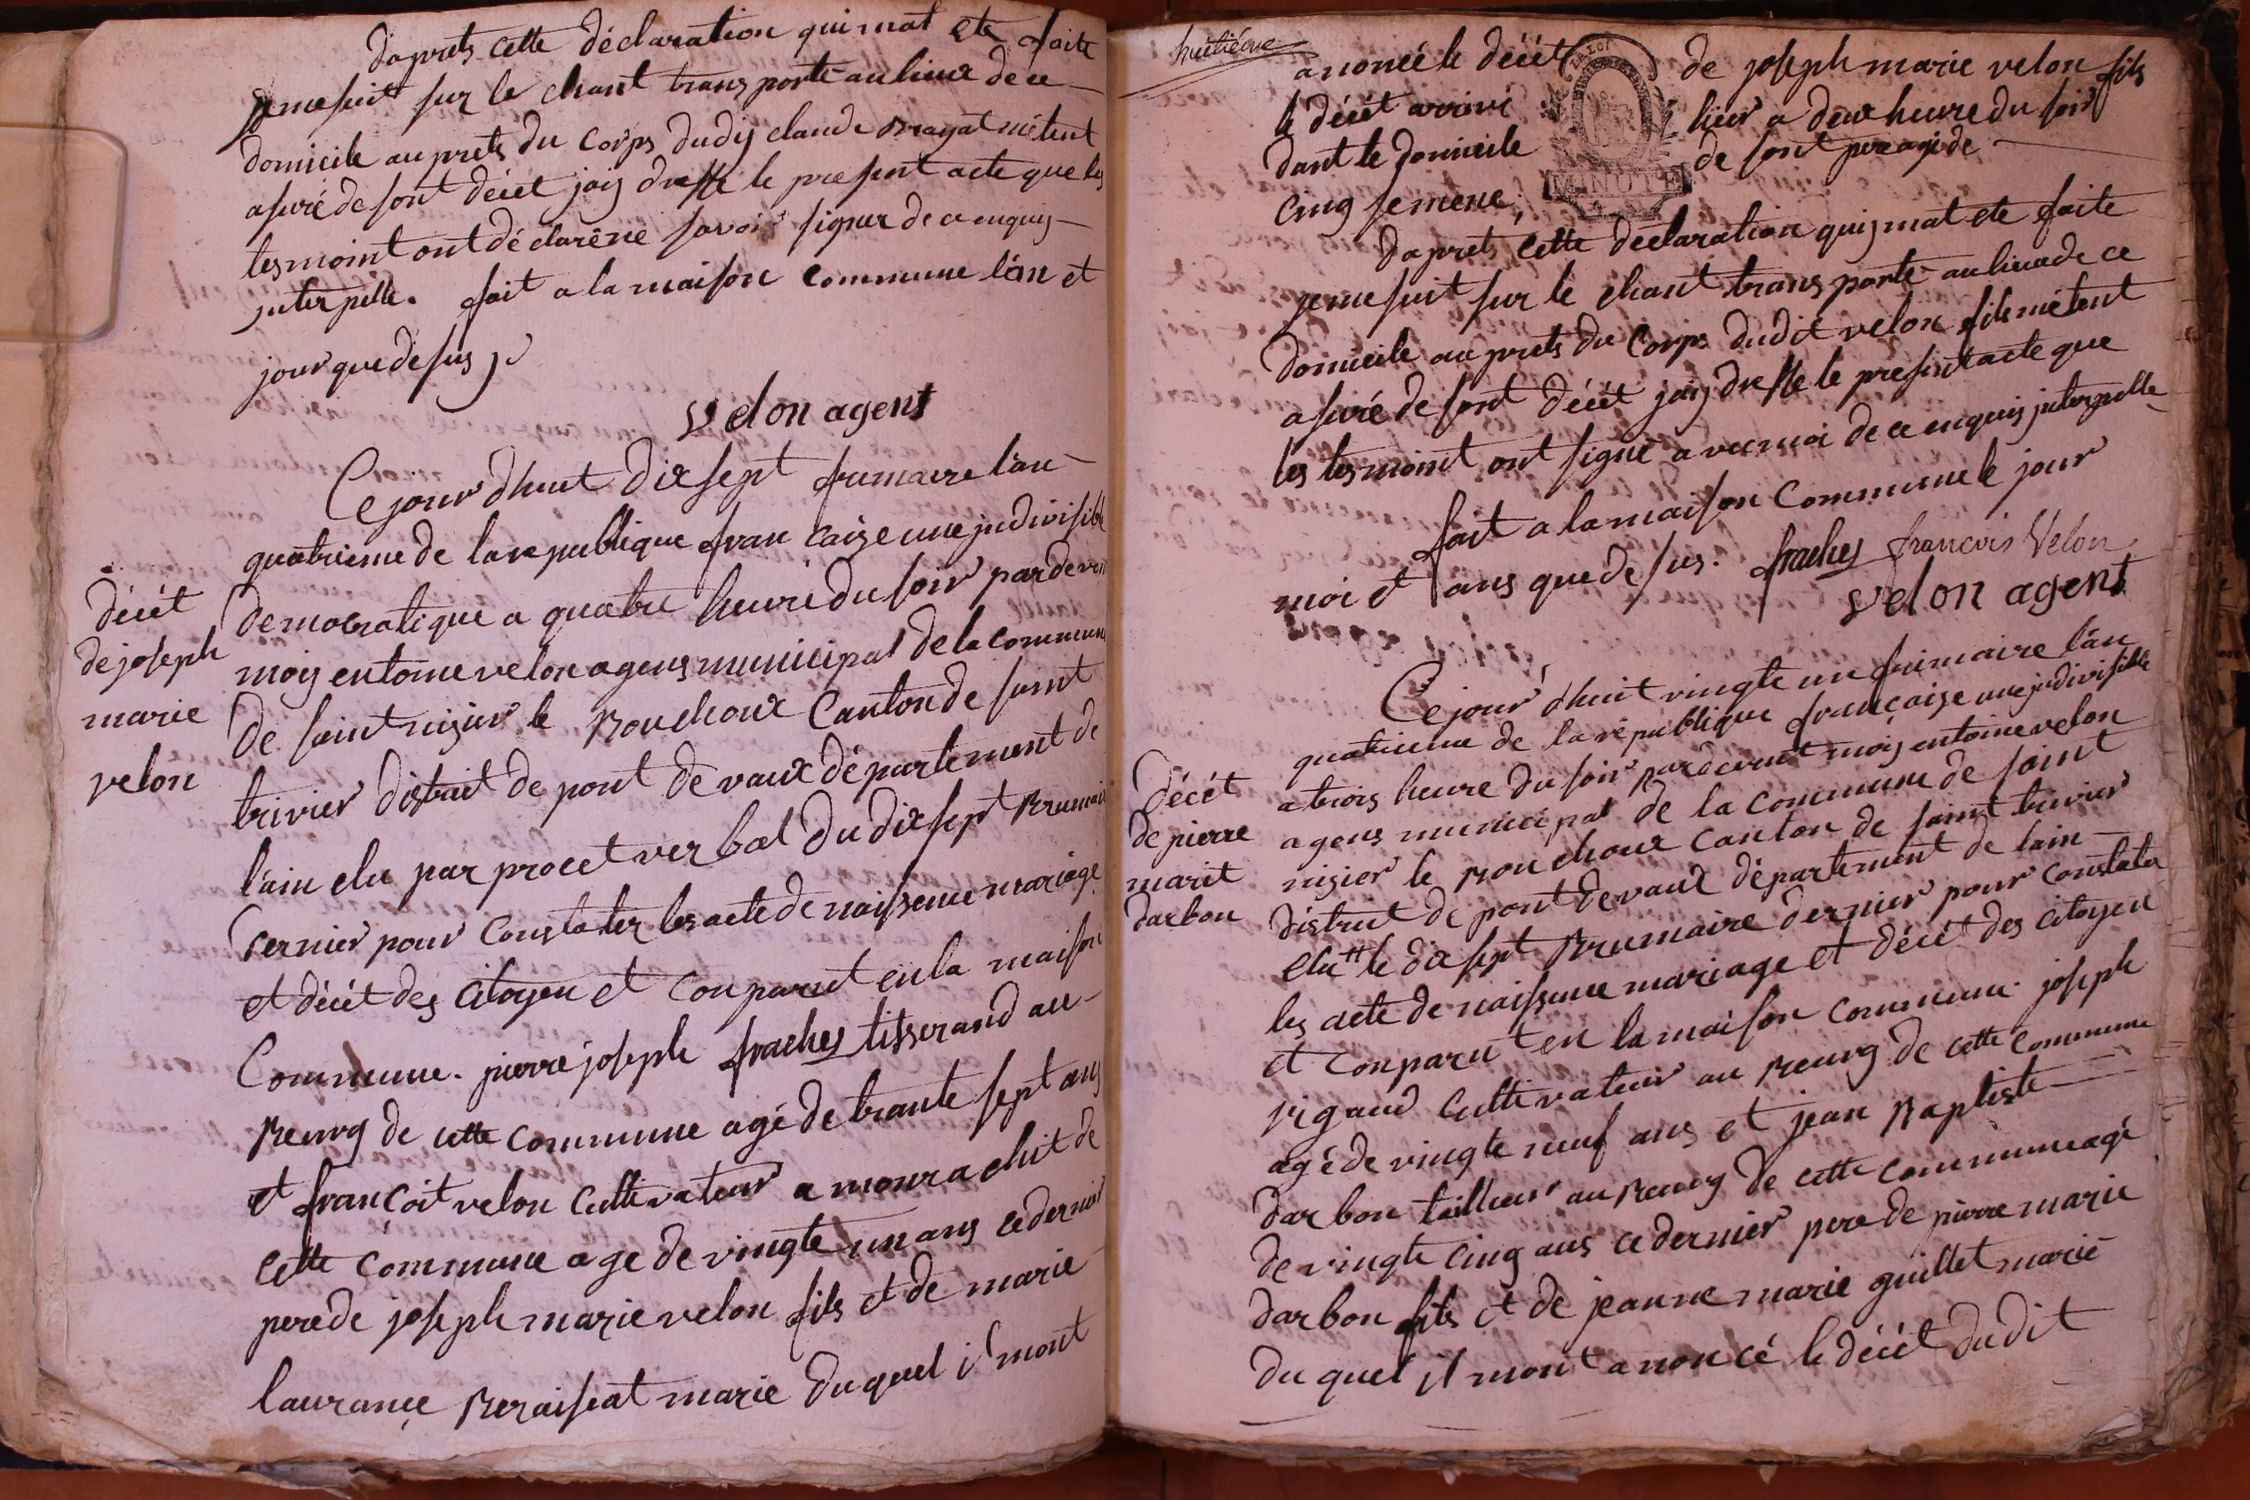 daprets cette déclaration quimat ete faite
je me suit sur le chant trans porté au lieux de ce
domicile auprets du corps dudy claude Mayat mêtent
asuré de sont décet jaij dressé le present acte que les
tesmoint ont déclarêne savoir signer de ce enquis
jnterpellé. fait a la maison commune lan et
jour que desus
velon agent
décét
de joseph
marie
velon
Ce jour dhuit dixsept frimaire lan
quatrieme de la republique fran caize une jndivisible
democratique a quatre heure du soir pardevent
moij entoine velon agens municipal de la commune
de saint nizier le Bouchoux Canton de saint
trivier district de pont de vaux département de
lain elu par procet verbal du dixsept Brumaire
dernier pour Constater les acte de naissence mariage
et décét des citoyen et conparut en la maison
Commune. pierre joseph fraches tisserand au
Bourg de cette commune agé de trante sept ans
et françoit velon cultivateur a moura chit de
cette commune age de vingte un ans ce dernier
pere de joseph marie velon fils et de marie
laurançe Beraiseat marie du quel il mont
huitiéme
anoncé le décét de joseph marie velon fils
le décét arrivé hier a deux heure du soir
dant le domicile de sont pere agé de
cinq semene,
LA LOI
MINUTE
daprets cette déclaration quij mat ete faite
je me suit sur le chant trans porté au lieux de ce
domicile au prets du corps dudit velon fils mêtent
asuré de sont décét jaij dressé le present acte que
les tesmoint ont signé avec moi de ce enquis jnterpellé
fait a la maison commune le jour
moi et ans que desus. fraches francois Velon
velon agent
décét
de pierre
marit
darbon
Ce jour dhuit vingte un frimaire lan
quatrieme de la république française une jndivisible
a trois heure du soir pardevent moij entoine velon
agens municipal de la commune de saint
nizier le Bouchoux canton de saint trivier
district de pont devaux département de lain
elu le dixsept Brumaire dernier pour constater
les acte de naissence mariage et décét des citoyen
et conparut en la maison commune. joseph
rigaud cultivateur au Bourg de cette commune
agé de vingte neuf ans et jean Baptiste
darbon tailleur au Bourg de cette commune agé
de vingte cinq ans ce dernier pere de pierre marie
darbon fils et de jeanne marie guillet marié
du quel jl mont anoncé le décét dudit